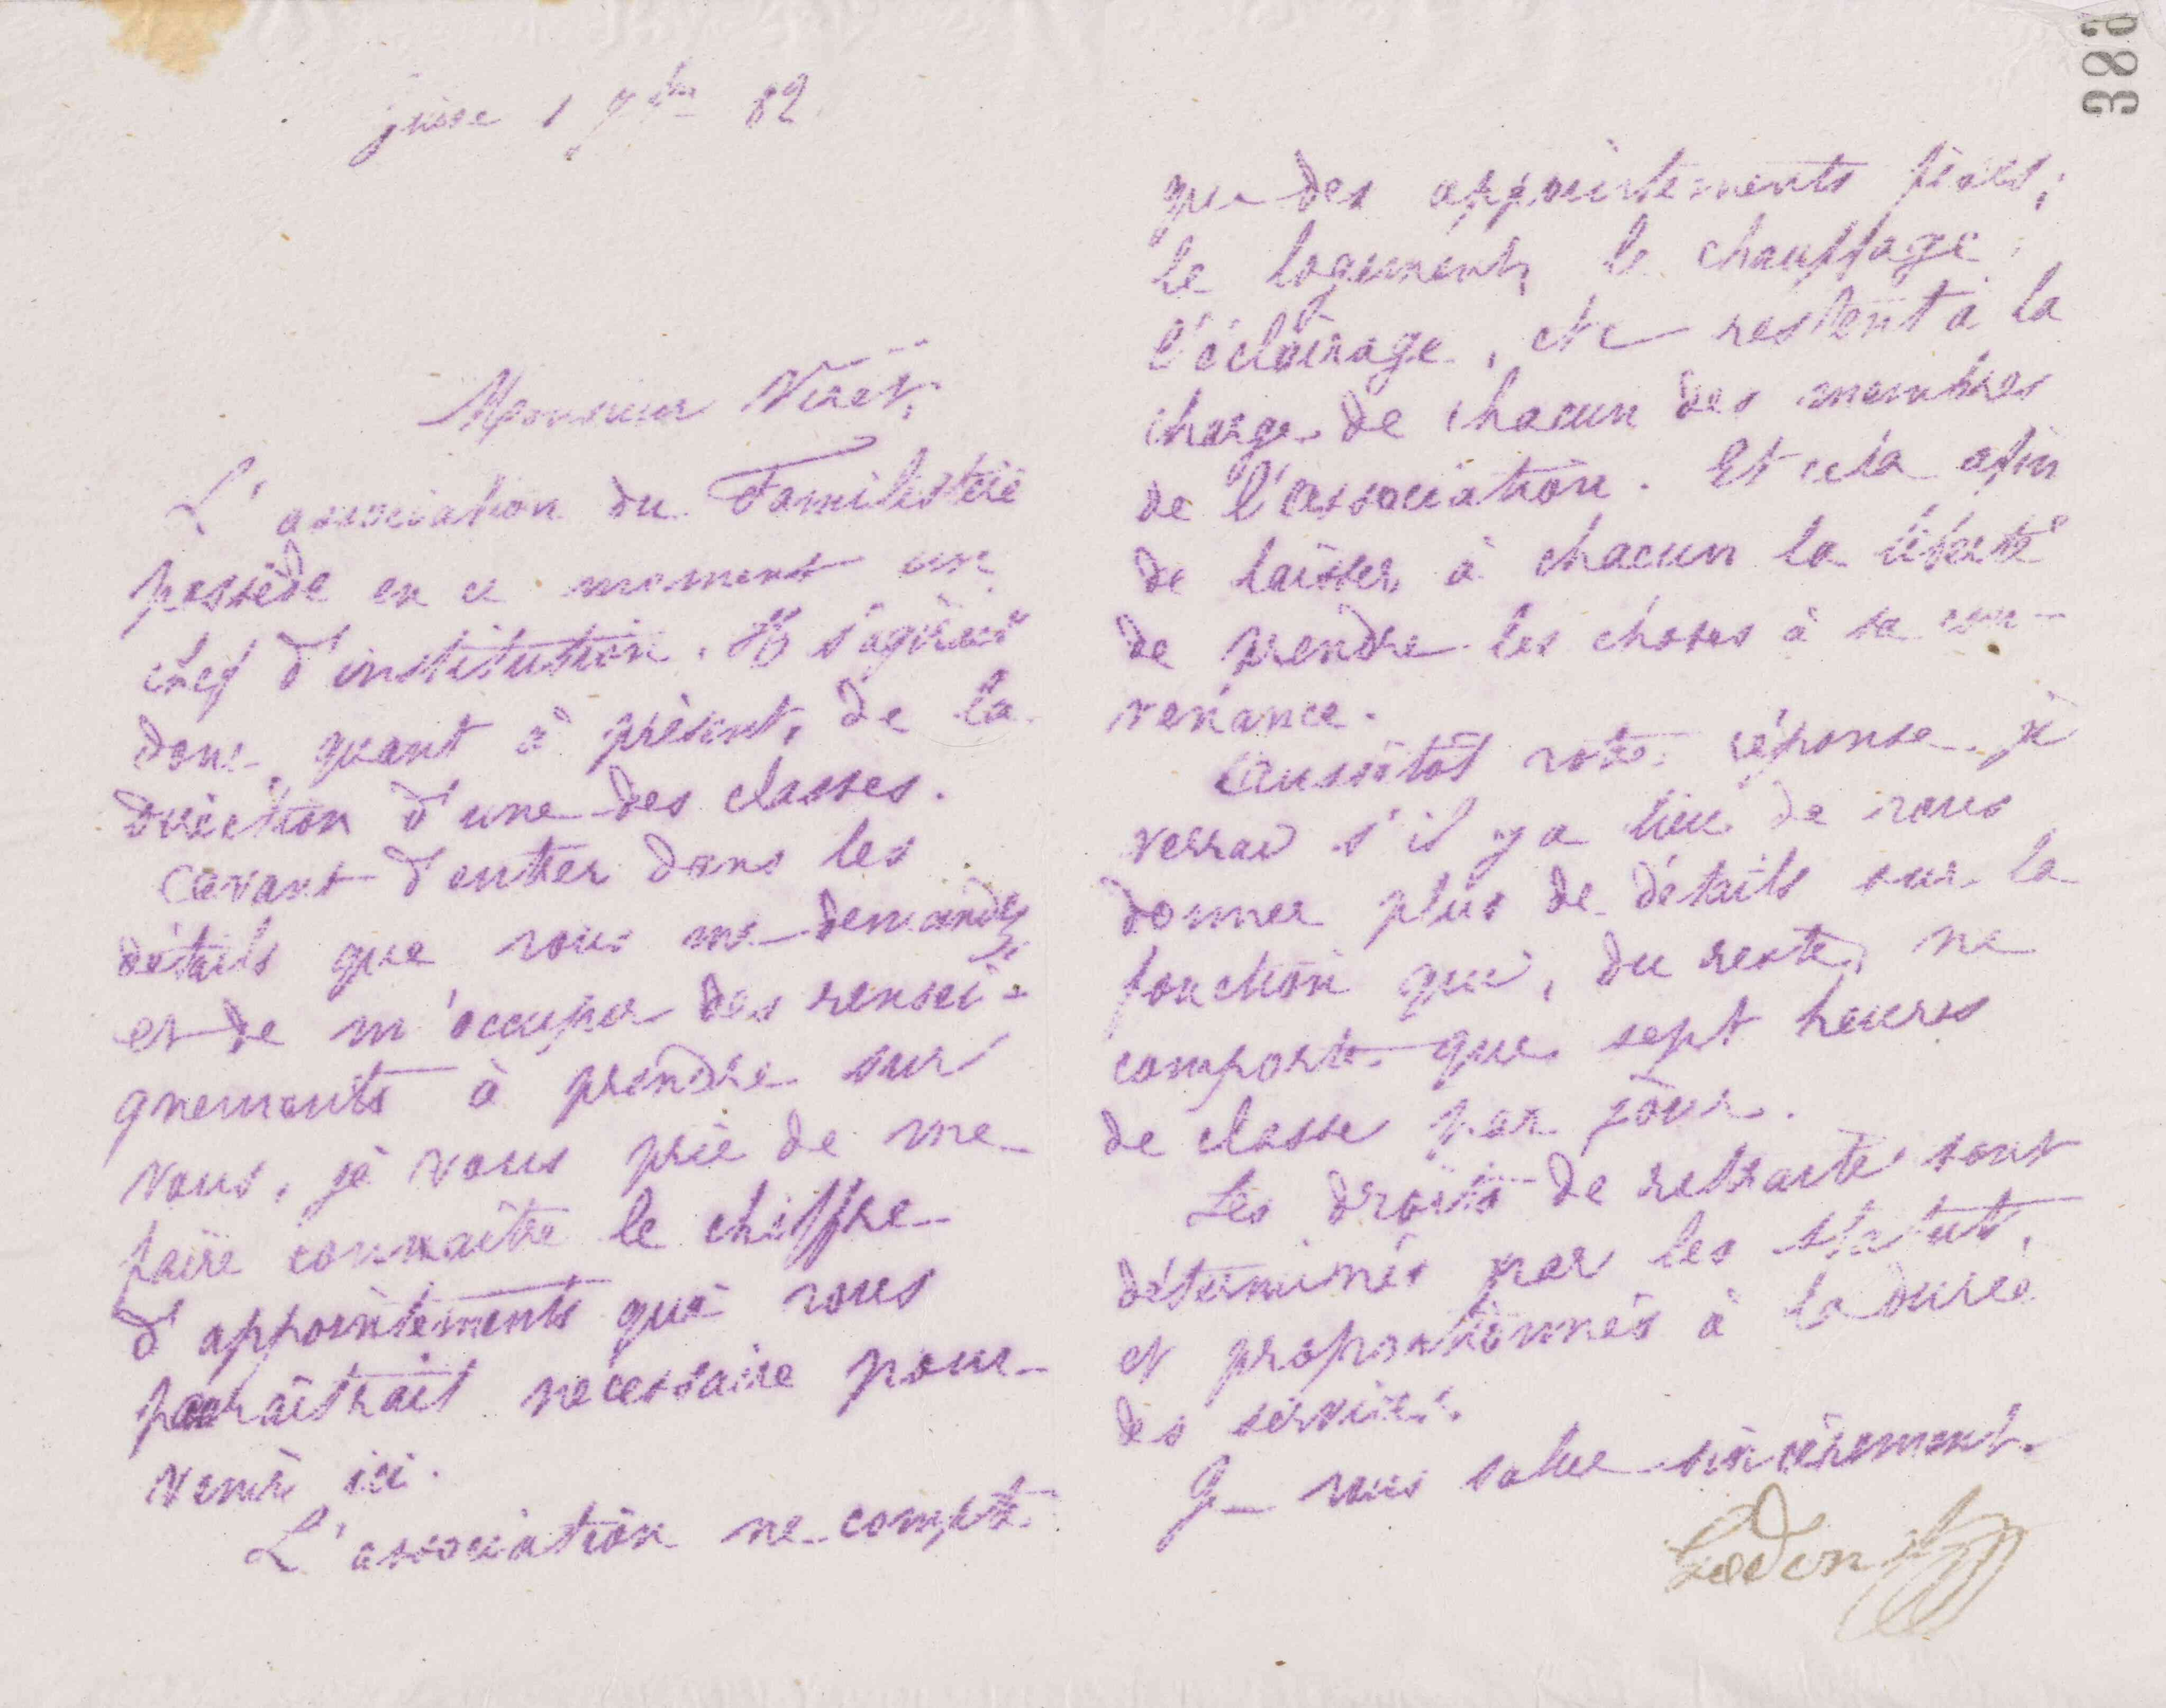 Guise 1 7bre 82
Monsieur Viret,
L'association du Familistère
possède en ce moment un
chef d'institution. Il s'agirait
donc, quant à présent, de la
direction d'une des classes.
Avant d'entrer dans les
détails que vous me demandez
et de m'occuper des rensei-
gnements à prendre sur
vous, je vous prie de me
faire connaître le chiffre
d'appointements qui vous
paraîtrait nécessaire pour
venir ici.
L'association ne compte
que des appointements fixes;
le logement, le chauffage,
l'éclairage, etc restent à la
charge de chacun des membres
de l'association. Et cela afin
de laisser à chacun la liberté
de prendre les choses à sa con-
venance.
Aussitôt votre réponse je
verrai s'il y a lieu de vous
donner plus de détails sur la
fonction qui, du reste, ne
comporte que sept heures
de classe par jour.
Les droits de retraite sont
déterminés par les statuts,
et proportionnés à la durée
des services.
Je vous salue sincèrement.
Godin
388